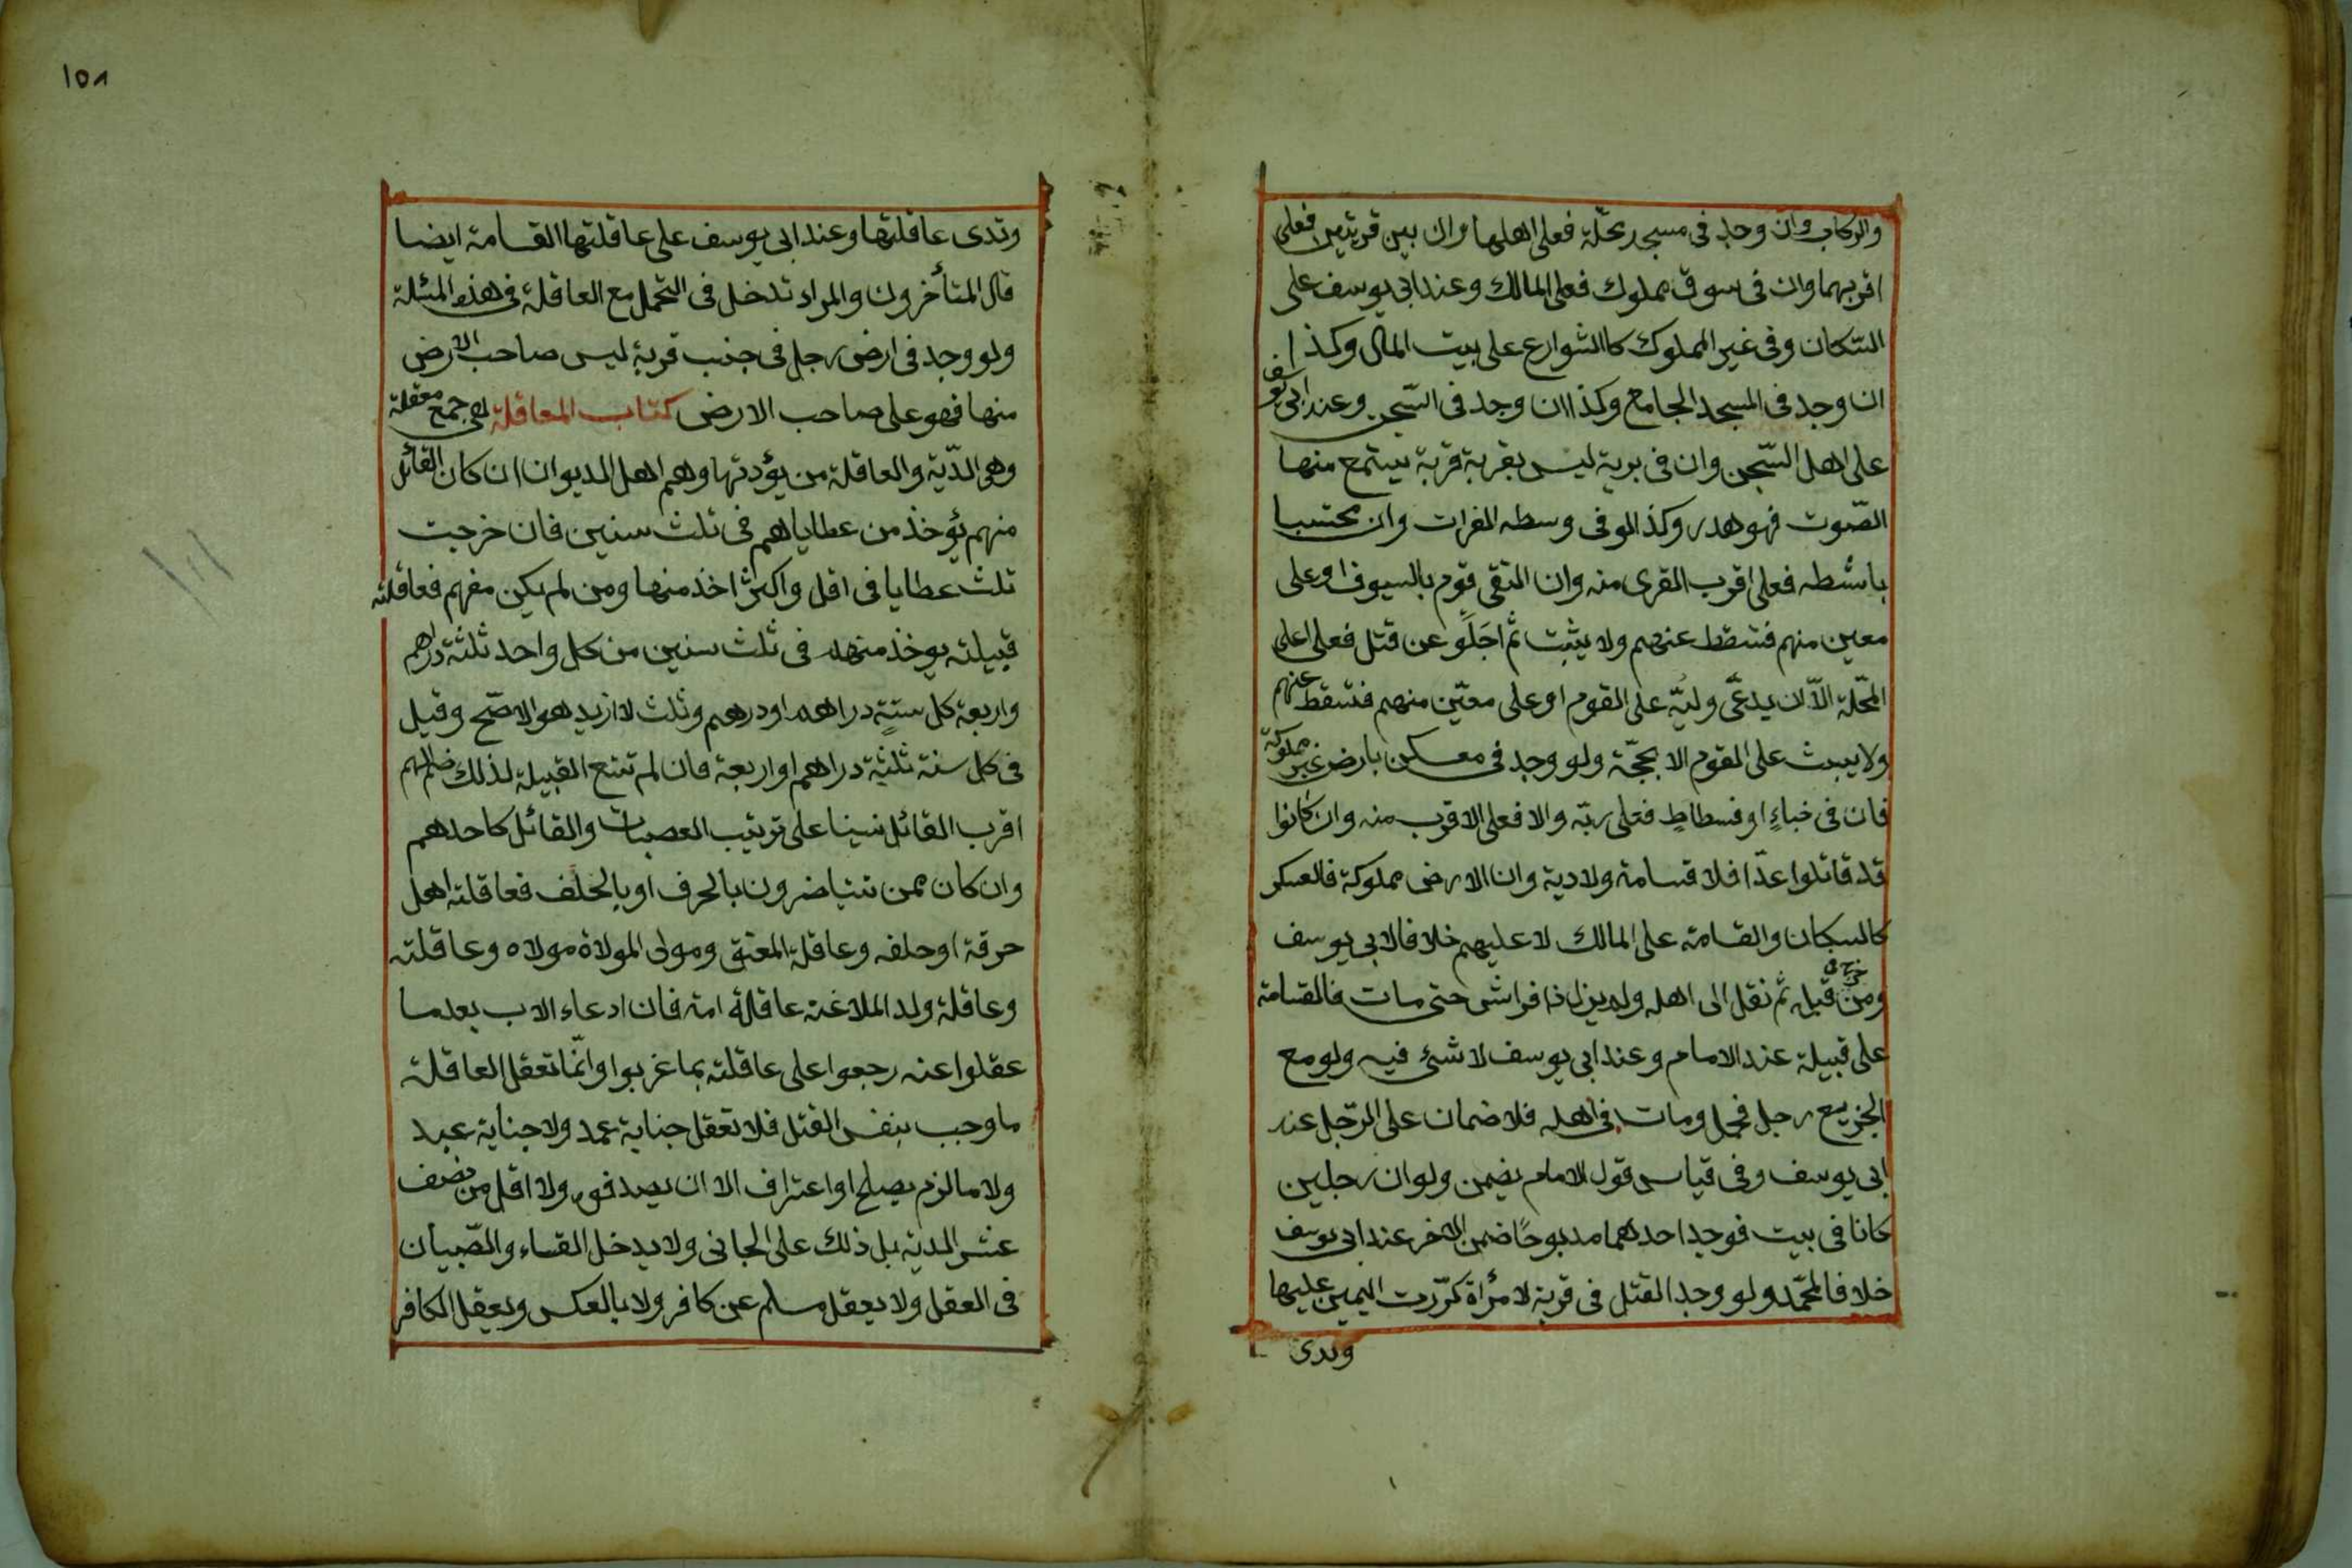 والركاب وان وجد في مسجد محلّة فعلى اهلها وان بين قريتين فعلى
اقربهما وان فى سوق مملوك فعلى المالك وعند ابى يوسف على
السّكان وفى غير المملوك كالشوارع على بيت المال وكذا
ان وجد فى المسجد الجامع وكذا ان وجد فى السّجن وعند ابى يوسف
على اهل السّجن وان فى برية ليس بقربة قرية يستمع منها
الصّوت فهو هدر وكذا لو فى وسطه الفرات وان محتسبا
باشطه فعلى اقرب القرى منه وان التقى قوم بالسيوف او على
معين منهم فتسقط عنهم ولا يثبت ثم اجَلَو عن قتل فعلى اهل
المحّلة الّا ان يدعّى وليّه على القوم او على معيّن منهم فتسقط عنهم
ولا يبث على القوم الا بحجّة ولو وجد فى معسكر بارض غير مملوكة
فان فى خباءٍ او فسطاطٍ فعلى ربّه والا فعلى الاقرب منه وان كانوا
قد قاتلوا عدّا فلا قسامة ولا دية وان الارض مملوكة فالعسكر
كالسكان والقسامة على المالك لا عليهم خلافا لابى يوسف
ومن جرح فى قبيله ثم نقل الى اهله ولم يزل ذا فراش حتى مات فالقسامة
على قبيلة عند الامام وعند ابى يوسف لا شئ فيه ولو مع
الجريح رجل فحمل ومات فى اهله فلا ضمان على الرّجل عند
ابى يوسف وفى قياس قول الامام يضمن ولو ان رجلين
كانا فى بيت فوجد احدهما مدبوحًا ضمن الاخر عند ابى يوسف
خلافا لمحمّد ولو وجد القتل فى قرية لامرأة كرّرت اليمين عليها
وتدى
١٥٨
وتدى عاقلتها وعند ابى يوسف على عاقلتها القسامة ايضا
قال المتأخرون والمراد تدخل فى التحمل مع العاقلة فى هذه المئلة
ولو وجد فى ارض رجل فى جنب قرية ليس صاحب الارض
منها فهو على صاحب الارض كتاب المعاقلة هى جمع معقلة
وهى الدّية والعاقلة من يؤدتها وهم اهل الديوان ان كان القائل
منهم يؤخذ من عطاياهم فى ثلث سنين فان خرجت
ثلث عطايا فى اقل واكثر اخذ منها ومن لم يكن منهم فعاقلته
قبيلته يوخذ منهم فى ثلث سنين من كل واحد ثلثة دراهم
واربعة كل ستةٍ دراهم او درهم وثلث لا ازيد هو الاصّح وقيل
فى كل سنة ثلثة دراهم او اربعة فان لم تتع القبيلة لذلك ضم اليهم
اقرب القائل نسبا على ترتيب العصبات والقائل كاحدهم
وان كان ممن يتناصرون بالحرف او بالحلف فعاقلته اهل
حرفة او حلفه وعاقلة المعتق ومولى المولاة مولاه وعاقلته
وعاقلة ولد الملاعنة عاقلة امه فان ادعاه الاب بعد ما
عقلوا عنه رجعوا على عاقلته بما غربوا وانّما تعقل العاقلة
ما وجب بنفس القتل فلا تعقل جناية عمد ولا جناية عبد
ولا ما لزم بصلح او اعتراف الا ان يصدقوه ولا اقل من نصف
عشر الدية بل ذلك على الجانى ولا يدخل النساء والصّبيان
فى العقل ولا يعقل مسلم عن كافر ولا بالعكس ويعقل الكافر